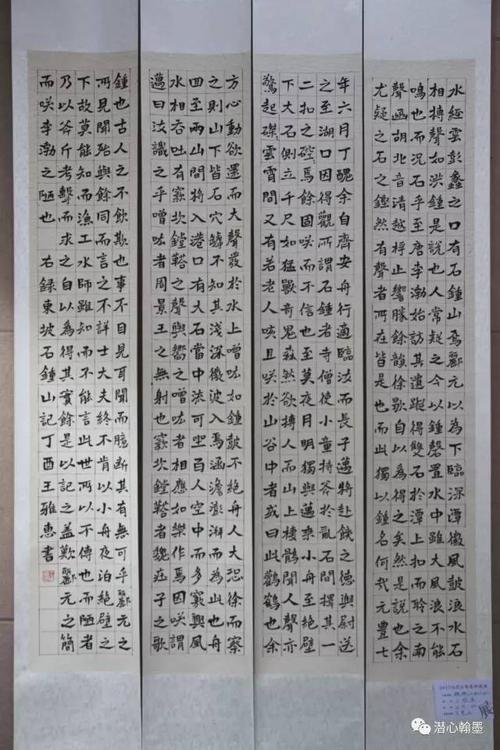 水經雲彭蠡之口有石鍾山焉酈元以為下臨深潭微風鼓浪水石
相搏聲如洪鍾是說也人常疑之今以鍾磬置水中雖大風浪不能
鳴也而況石乎至唐李渤始訪其遺蹤得雙石於潭上扣而聆之南
聲函胡北音清越桴止響騰餘韻徐歇自以為得之矣然是說也余
尤疑之石之鏗然有聲者所在皆是也而此獨以鍾名何哉元豐七
年六月丁醜余自齊安舟行適臨汝而長子邁將赴饒之德興尉送
之至湖口因得觀所謂石鍾者寺僧使小童持斧於亂石間擇其一
二扣之硿焉餘固咲而不信也至夜月明獨與邁乘小舟至絕壁
下大石側立千尺如猛獸奇鬼森然欲搏人而山上棲鶻聞人聲亦
驚起磔雲霄間又有若老人咳且咲於山谷中者或曰此鸛鶴也余
方心動欲還而大聲發於水上噌吰如鍾鼓不絕舟人大恐徐而察
之則山下皆石穴罅不知其淺深微波入焉涵澹澎湃而為此也舟
回至兩山間將入港口有大石當中流可坐百人空中而多竅與風
水相吞吐有窾坎鏜鞳之聲與嚮之噌吰者相應如樂作焉因咲謂
邁曰汝識之乎噌吰者周景王之無射也窾坎鏜鞳者魏莊子之歌
鍾也古人之不餘欺也事不目見耳聞而臆斷其有無可乎酈元之
所見聞殆與餘同而言之不詳士大夫終不肯以小舟夜泊絕壁之
下故莫能知而漁工水師雖知而不能言此世所以不傳也而陋者
乃以斧斤考擊而求之自以為得其實餘是以記之蓋歎酈元之簡
而咲李渤之陋也 右錄東坡石鍾山記丁酉王雅惠書
潜心翰墨